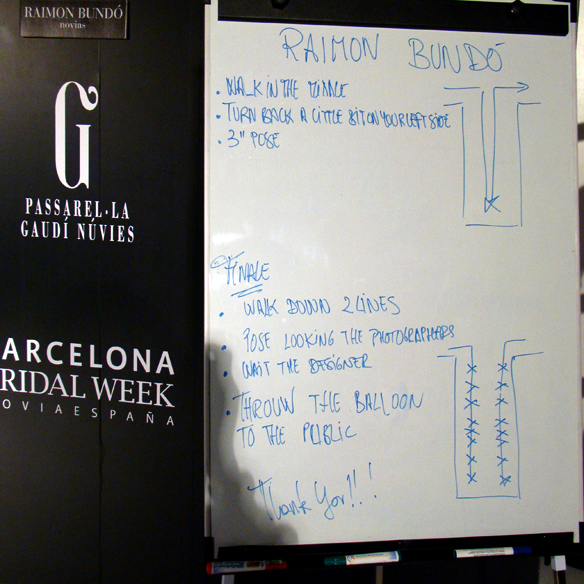 RAIMON BUNDÓ
novias
G
PASSAREL·LA
GAUDÍ NÚVIES
ARCELONA
RIDAL WEEK
OVIAESPAÑA
RAIMON BUNDÓ
• WALK IN THE MIDDLE
• TURN BACK A LITTLE BIT ON YOUR LEFT SIDE
• 3" POSE
FINALE
• WALK DOWN 2 LINES
• POSE LOOKING THE PHOTOGRAPHERS
• WAIT THE DESIGNER
• THROUW THE BALLOON
TO THE PUBLIC
Thank You!!!